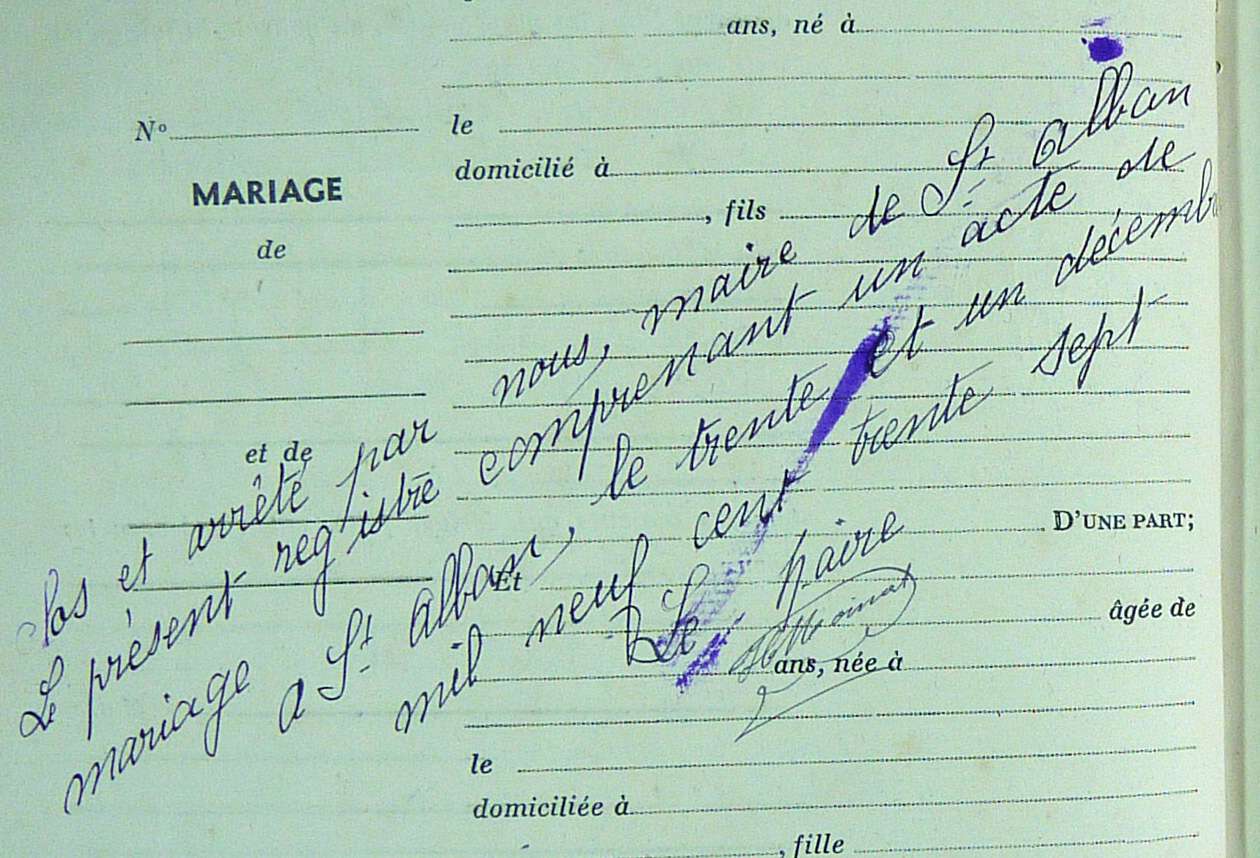 ans, né à
N°
le
MARIAGE
domicilié à
, fils
de
et de
Clos et arrêté par nous, maire de St alban
Le présent registre comprenant un acte de
mariage a St alban, le trente et un décemb
mil neuf cent trente sept
Le Maire
D'UNE PART;
Et
âgée de
ans, née à
le
domiciliée à
, fille